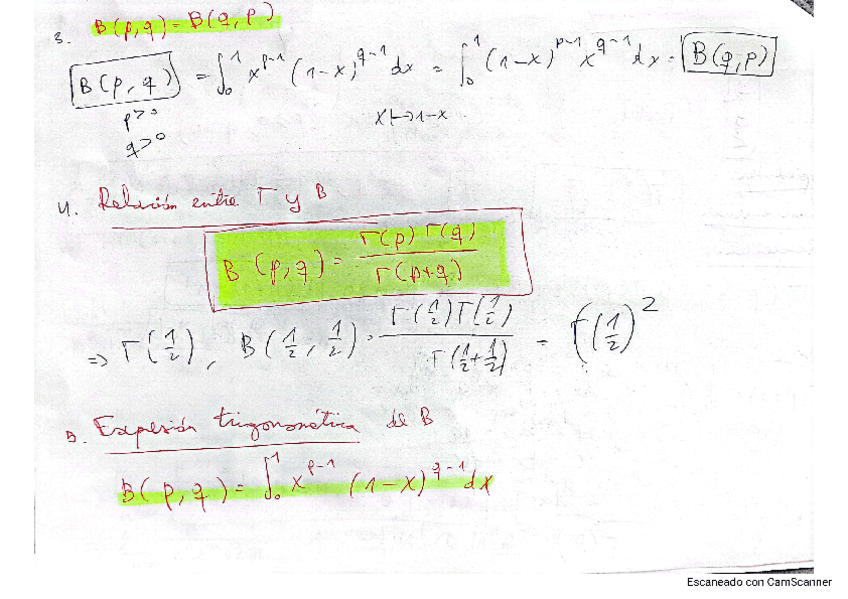 3. B(p,q) = B(q,p)
B(p,q) = ∫₀¹ x^{p-1} (1-x)^{q-1} dx = ∫₀¹ (1-x)^{p-1} x^{q-1} dx = B(q,p)
p>0
x ↦ 1-x
q>0
4. Relación entre Γ y B
B(p,q) = Γ(p) Γ(q) / Γ(p+q)
⇒ Γ(1/2), B(1/2, 1/2) = Γ(1/2) Γ(1/2) / Γ(1/2+1/2) = Γ(1/2)²
Expresión trigonométrica de B
B(p,q) = ∫₀¹ x^{p-1} (1-x)^{q-1} dx
Escaneado con CamScanner